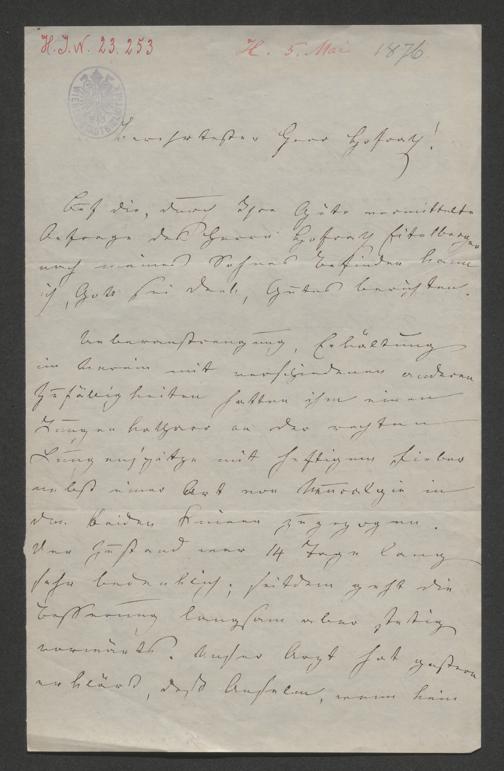 H. I. N. 23.253
H. 5. Mai 1876
Verehrtester Herr Hofrath!
Auf die, durch Ihre Güte vermittelte
Anfrage des Herrn Hofrath Eitelberger
nach meines Sohnes Befinden kann
ich, Gott sei Dank, Gutes berichten.
Ueberanstrengung, Erkältung
im Verein mit verschiedenen anderen
Zufälligkeiten hatten ihm einen
Lungenkatharr an der rechten
Lungenspitze mit heftigem Fieber
nebst einer Art von Neuralgie in
den beiden Knieen zugezogen.
Der Zustand war 14 Tage lang
sehr bedenklich; seitdem geht die
Besserung langsam aber stetig
vorwärts. Unser Arzt hat gestern
erklärt, daß Anselm, wenn kein